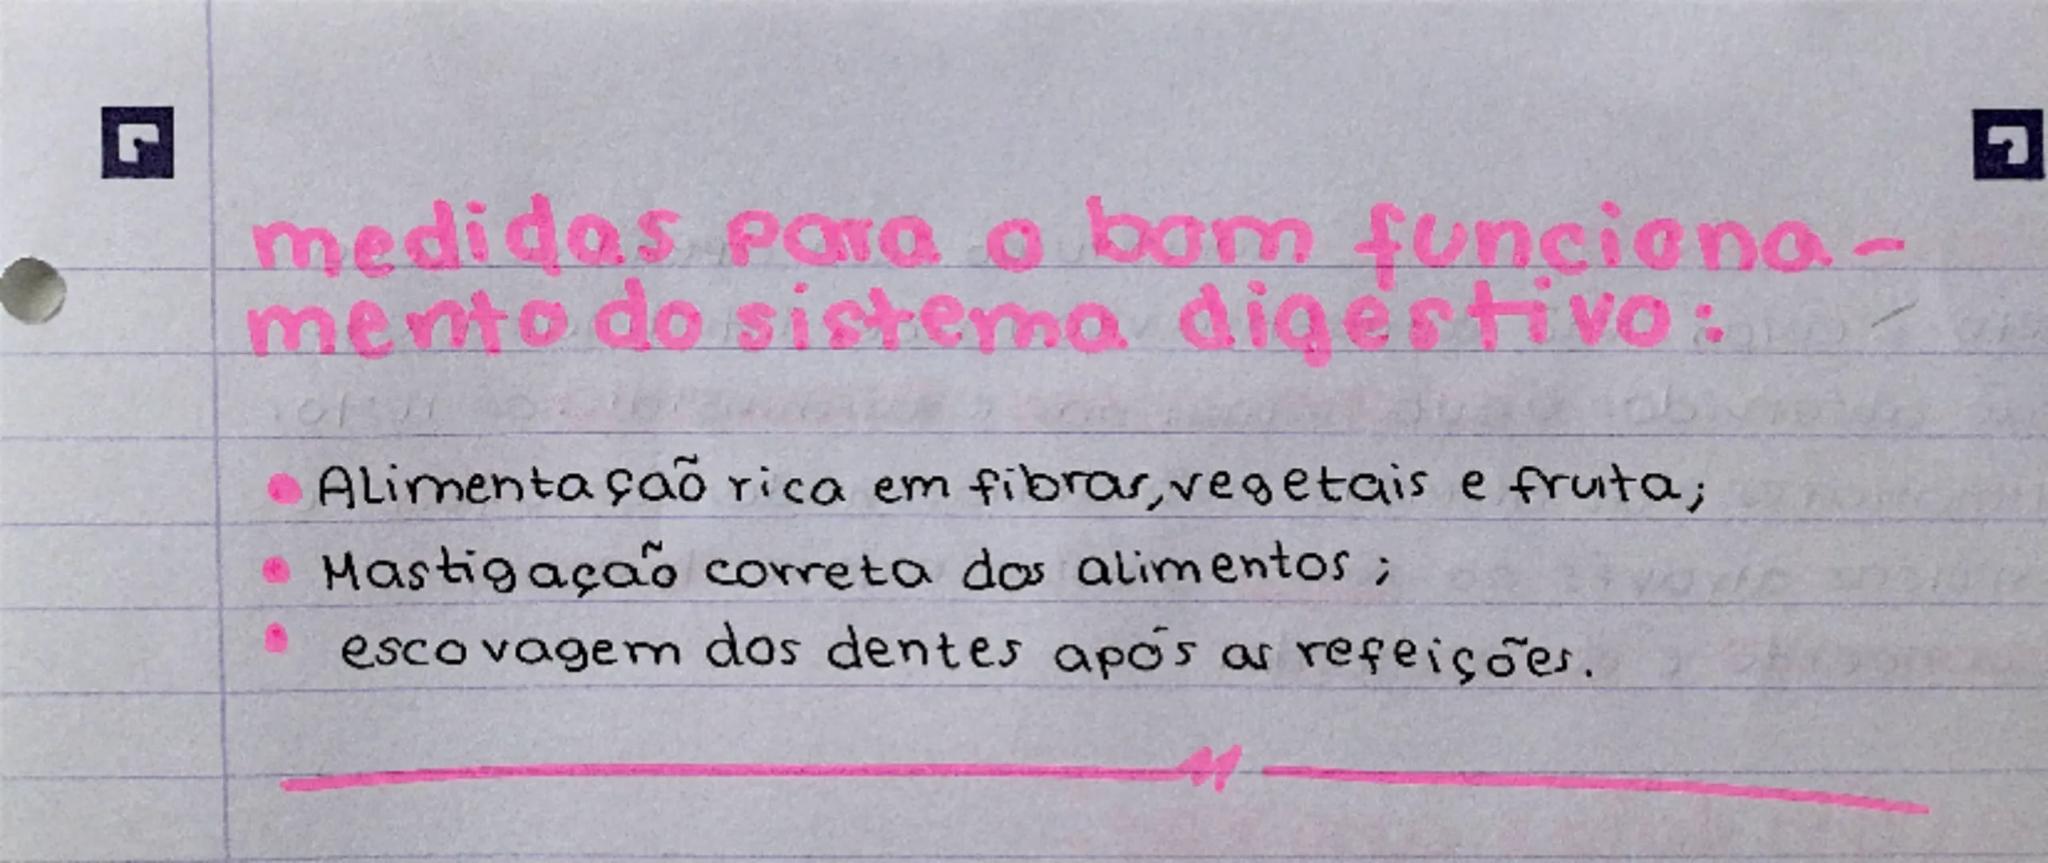 medidas para o bom funciona-
mento do sistema digestivo:
• Alimentação rica em fibras, vegetais e fruta;
• Mastigação correta dos alimentos;
• escovagem dos dentes após as refeições.